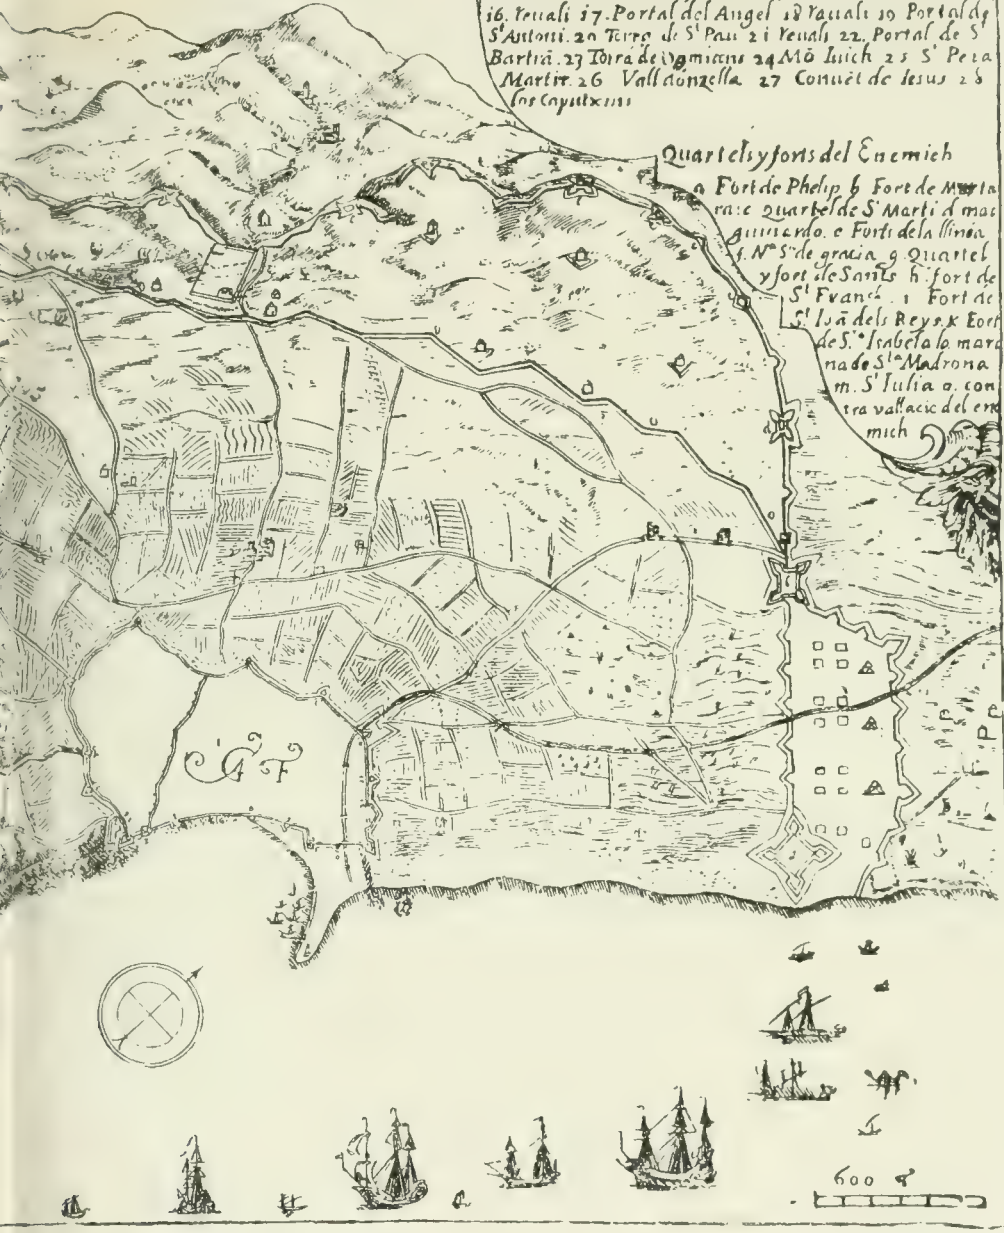 16. Reuali 17. Portal del Angel 18 Rauali 19 Portal de
St Antoni. 20 Torre de St Pau 21 Reuali 22. Portal de St
Bartrā. 23 Torra de 24 Mō Iuich 25 St Pera
Martir. 26 Valldonzella 27 Conuēt de Iesus 28
los Caputxins
Quartels y forts del Enemich
a Fort de Phelip b Fort de Monta
ra: c Quartel de St Marti d mas
guinardo. e Forts de la llinea
f. Na Sa de gracia g Quartel
y fort de Sants h. fort de
St Franch. i Fort de
St Isā dels Reys. K Fort
de Sta Isabeta lo mari
na de Sta Madrona
m. St Iulia o. con
tra vallacio del ene
mich
G F
600